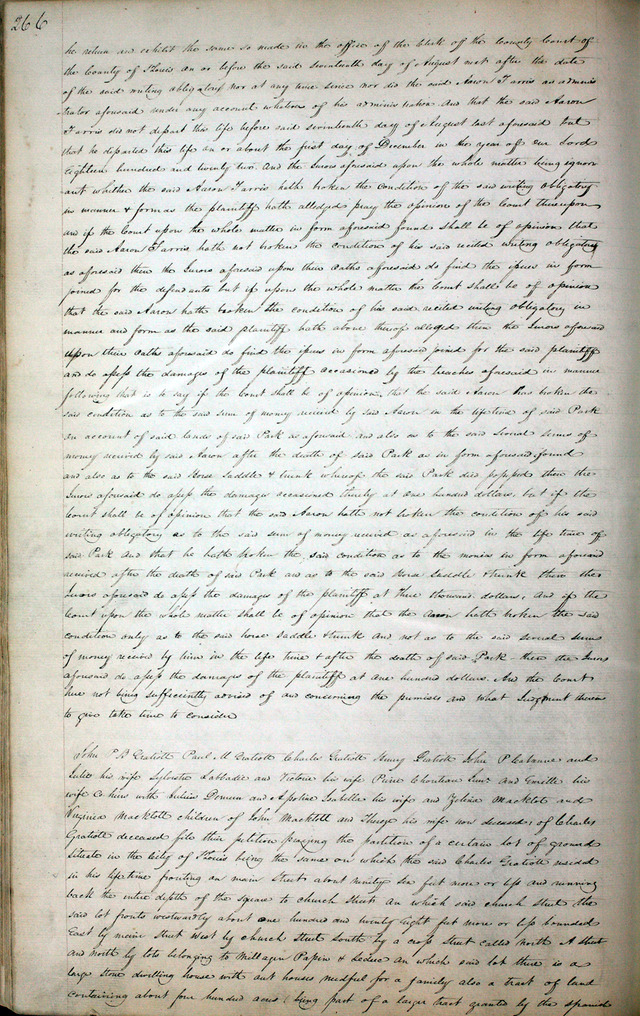 266
he return an exhibit the same so made in the office of the Clerk of the County Court of
the County of St Louis on or before the said seventeenth day of August next after the date
of the said writing obligatory nor at any time since nor did the said Aaron Farris as adminis
trator aforesaid render any account whatever of his administration. And that the said Aaron
Farris did not depart this life before said seventeenth day of August last aforesaid but
that he departed this life on or about the first day of December in the year of our Lord
Eighteen hundred and twenty two. And the Jurors aforesaid upon the whole matter being ignor
ant whether the said Aaron Farris hath broken the Condition of the said writing obligatory
in manner & form as the plaintiff hath alledged pray the opinion of the Court thereupon
and if the Court upon the whole matter in form aforesaid found shall be of opinion that
the said Aaron Farris hath not broken the condition of his said recited writing obligatory
as aforesaid then the Jurors aforesaid upon their oaths aforesaid do find the issues in form
joined for the defendants but if upon the whole matter the Court shall be of opinion
that the said Aaron hath broken the condition of his said recited writing obligatory in
manner and form as the said plaintiff hath above thereof alleged then the Jurors afforesaid
upon their oaths aforesaid do find the issues in form aforesaid joined for the said plaintiff
and do assess the damages of the plaintiff occasioned by the breaches aforesaid in manner
following that is to say if the Court shall be of opinion that the said Aaron has broken the
said condition as to the said sum of money received by said Aaron in the lifetime of said Park
on account of said lands of said Park as aforesaid and also as to the said several sums of
money received by said Aaron after the death of said Park as in form aforesaid found
and also as to the said Horse Saddle & trunk whereof the said Park died possessed then the
Jurors aforesaid do assess the damages occasioned thereby at one hundred dollars. but if the
Court shall be of opinion that the said Aaron hath not broken the condition of his said
writing obligatory as to the said sum of money received as aforesaid in the life time of
said Park And that he hath broken the said condition as to the monies in form aforesaid
received after the death of said Park and as to the said Horse Saddle & trunk then the
Jurors aforesaid do assess the damages of the plaintiff at three thousand dollars. And if the
Court upon the whole matter shall be of opinion that the Aaron hath broken the said
condition only as to the said horse saddle & trunk and not as to the said several sums
of money receved by him in the life time & after the death of said Park - then the Jurors
aforesaid do assess the damages of the plaintiff at one hundred dollars. And the Court
here not being sufficiently advised of and concerning the premises and what Judgment therein
to give take time to consider
John P B Gratiott Paul M Gratiott Charles Gratiott Henry Gratiott John P Cabanne and
Julie his wife Sylvestre Labbadie and Victoire his wife Pierre Chouteau Junr. and Emilie his
wife Coheirs with Julien Demun and Isabella his wife and Zeline Macklot and
Virginia Macklott children of John Macklott and Therese his wife now deceased; of Charles
Gratiott deceased file their petition praying the partition of a certain lot of ground
situate in the City of St Louis being the same on which the said Charles Gratiott resided
in his lifetime fronting on main Street about ninety six feet more or less and running
back the entire depth of the square to church street on which said church Street the
said lot fronts westwardly about one hundred and twenty eight feet more or less bounded
East by maine street west by church Street South by a cross street called North A Street
and north by lots belonging to Papin & Leduc on which said lot there is a
large Stone dwelling house with out houses needful for a family also a tract of land
containing about four hundred acres, being part of a larger tract granted by the spanish